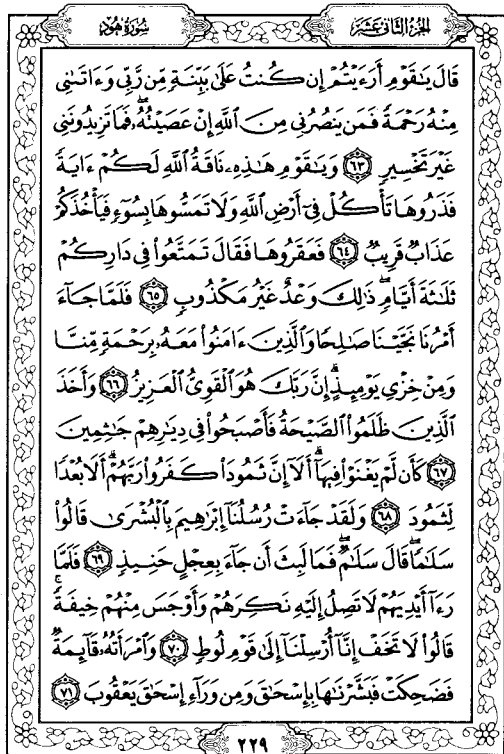 سُورَةُ هُودٍ
الجزء الثاني عشر
قَالَ يَٰقَوْمِ أَرَءَيْتُمْ إِن كُنتُ عَلَىٰ بَيِّنَةٍ مِّن رَّبِّي وَءَاتَىٰنِي
مِنْهُ رَحْمَةً فَمَن يَنصُرُنِي مِنَ ٱللَّهِ إِنْ عَصَيْتُهُۥۖ فَمَا تَزِيدُونَنِي
غَيْرَ تَخْسِيرٍ ٦٣ وَيَٰقَوْمِ هَٰذِهِۦ نَاقَةُ ٱللَّهِ لَكُمْ ءَايَةً
فَذَرُوهَا تَأْكُلْ فِىٓ أَرْضِ ٱللَّهِ وَلَا تَمَسُّوهَا بِسُوٓءٍ فَيَأْخُذَكُمْ
عَذَابٌ قَرِيبٌ ٦٤ فَعَقَرُوهَا فَقَالَ تَمَتَّعُوا۟ فِى دَارِكُمْ
ثَلَٰثَةَ أَيَّامٍۖ ذَٰلِكَ وَعْدٌ غَيْرُ مَكْذُوبٍ ٦٥ فَلَمَّا جَآءَ
أَمْرُنَا نَجَّيْنَا صَٰلِحًا وَٱلَّذِينَ ءَامَنُوا۟ مَعَهُۥ بِرَحْمَةٍ مِّنَّا
وَمِنْ خِزْىِ يَوْمِئِذٍۗ إِنَّ رَبَّكَ هُوَ ٱلْقَوِىُّ ٱلْعَزِيزُ ٦٦ وَأَخَذَ
ٱلَّذِينَ ظَلَمُوا۟ ٱلصَّيْحَةُ فَأَصْبَحُوا۟ فِى دِيَٰرِهِمْ جَٰثِمِينَ
٦٧ كَأَن لَّمْ يَغْنَوْا۟ فِيهَآۗ أَلَآ إِنَّ ثَمُودَا۟ كَفَرُوا۟ رَبَّهُمْۗ أَلَا بُعْدًا
لِّثَمُودَ ٦٨ وَلَقَدْ جَآءَتْ رُسُلُنَآ إِبْرَٰهِيمَ بِٱلْبُشْرَىٰ قَالُوا۟
سَلَٰمًاۖ قَالَ سَلَٰمٌۖ فَمَا لَبِثَ أَن جَآءَ بِعِجْلٍ حَنِيذٍ ٦٩ فَلَمَّا
رَءَآ أَيْدِيَهُمْ لَا تَصِلُ إِلَيْهِ نَكِرَهُمْ وَأَوْجَسَ مِنْهُمْ خِيفَةًۚ
قَالُوا۟ لَا تَخَفْ إِنَّآ أُرْسِلْنَآ إِلَىٰ قَوْمِ لُوطٍ ٧٠ وَٱمْرَأَتُهُۥ قَآئِمَةٌ
فَضَحِكَتْ فَبَشَّرْنَٰهَا بِإِسْحَٰقَ وَمِن وَرَآءِ إِسْحَٰقَ يَعْقُوبَ ٧١
٢٢٩